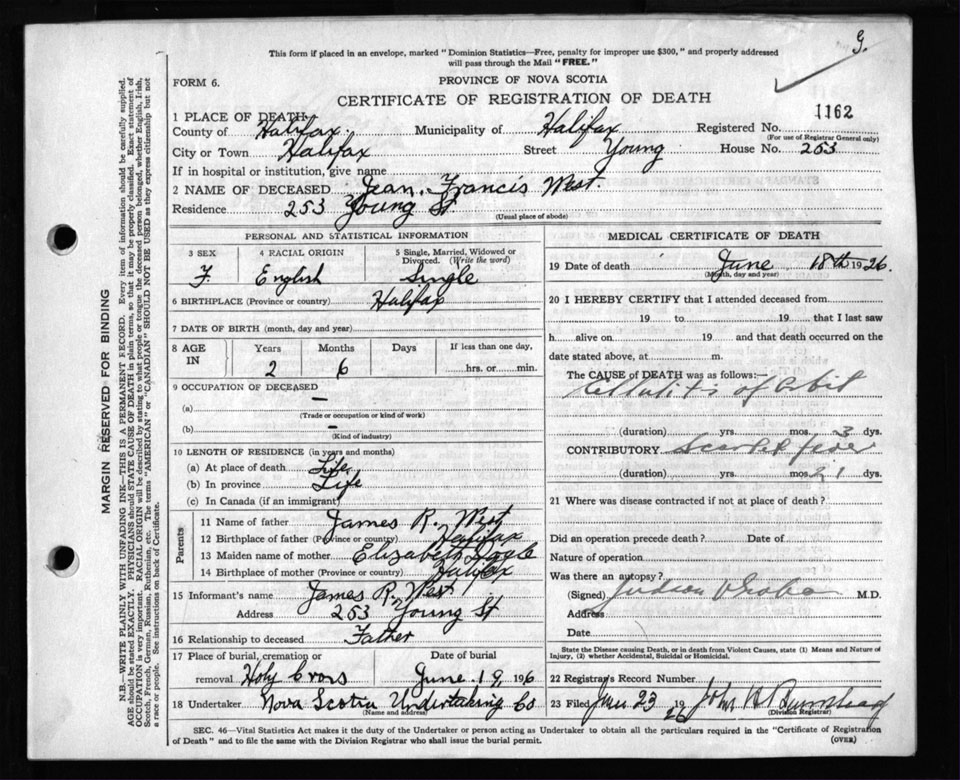 G.
This form if placed in an envelope, marked "Dominion Statistics—Free, penalty for improper use $300," and properly addressed
will pass through the Mail "FREE."
FORM 6.
PROVINCE OF NOVA SCOTIA
CERTIFICATE OF REGISTRATION OF DEATH
1162
1 PLACE OF DEATH
County of Halifax. Municipality of Halifax Registered No.
(For use of Registrar General only)
City or Town Halifax Street Young House No. 253
If in hospital or institution, give name
2 NAME OF DECEASED Jean. Francis West.
Residence 253 Young St
(Usual place of abode)
PERSONAL AND STATISTICAL INFORMATION
3 SEX 4 RACIAL ORIGIN 5 Single, Married, Widowed or Divorced. (Write the word)
F. English Single
6 BIRTHPLACE (Province or country) Halifax
7 DATE OF BIRTH (month, day and year)
8 AGE IN Years Months Days If less than one day,
2 6 hrs. or min.
9 OCCUPATION OF DECEASED
(a) –
(Trade or occupation or kind of work)
(b) –
(Kind of industry)
10 LENGTH OF RESIDENCE (in years and months)
(a) At place of death Life
(b) In province Life
(c) In Canada (if an immigrant)
Parents
11 Name of father James R. West
12 Birthplace of father (Province or country) Halifax
13 Maiden name of mother Elizabeth
14 Birthplace of mother (Province or country) Halifax
15 Informant's name James R. West
Address 253 Young St
16 Relationship to deceased Father
17 Place of burial, cremation or Date of burial
removal Holy Cross June 19, 1926
18 Undertaker Nova Scotia Undertaking Co
(Name and address)
MEDICAL CERTIFICATE OF DEATH
19 Date of death June 18th 1926.
(Month, day and year)
20 I HEREBY CERTIFY that I attended deceased from
19 to 19 that I last saw
h alive on 19 and that death occurred on the
date stated above, at m.
The CAUSE of DEATH was as follows:—
Cellulitis of Orbit
(duration) yrs. mos. 3 dys.
CONTRIBUTORY Scarlet fever
(duration) yrs. mos. 21 dys.
21 Where was disease contracted if not at place of death?
Did an operation precede death? Date of
Nature of operation
Was there an autopsy?
(Signed) M.D.
Address
Date
State the Disease causing Death, or in death from Violent Causes, state (1) Means and Nature of
Injury, (2) whether Accidental, Suicidal or Homicidal.
22 Registrar's Record Number
23 Filed June 23 1926 John
(Division Registrar)
SEC. 46—Vital Statistics Act makes it the duty of the Undertaker or person acting as Undertaker to obtain all the particulars required in the "Certificate of Registration
of Death" and to file the same with the Division Registrar who shall issue the burial permit. (OVER)
MARGIN RESERVED FOR BINDING
N.B.—WRITE PLAINLY WITH UNFADING INK—THIS IS A PERMANENT RECORD. Every item of information should be carefully supplied.
AGE should be stated EXACTLY. PHYSICIANS should STATE CAUSE OF DEATH in plain terms, so that it may be properly classified. Exact statement of
OCCUPATION is very important. RACIAL ORIGIN will be described by stating to what people or tongue the deceased person belonged, whether English, Irish,
Scotch, French, German, Russian, Ruthenian, etc. The terms "AMERICAN" or "CANADIAN" SHOULD NOT BE USED as they express citizenship but not
a race or people. See instructions on back of Certificate.